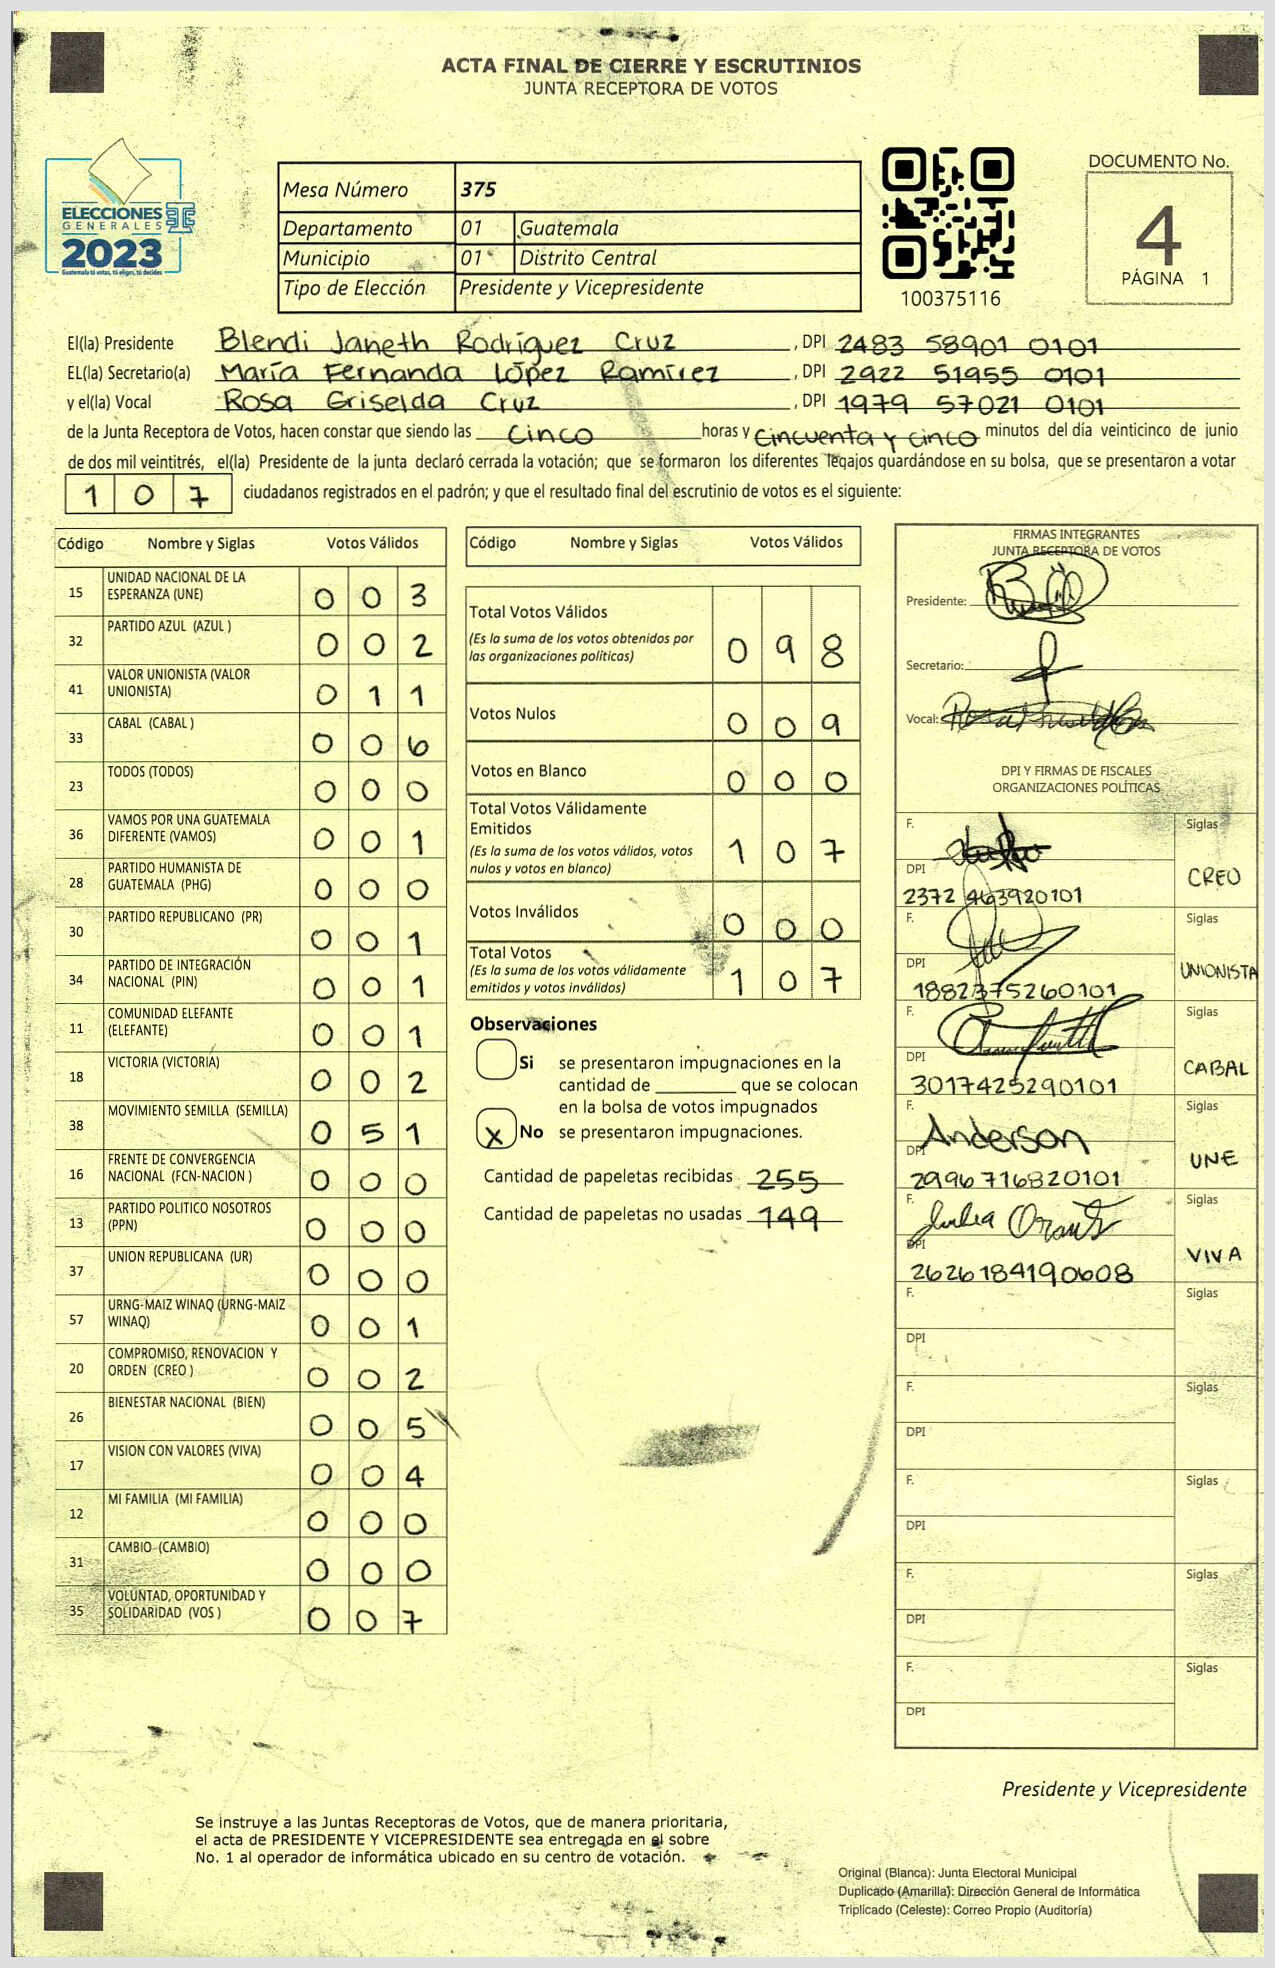 ACTA FINAL DE CIERRE Y ESCRUTINIOS
JUNTA RECEPTORA DE VOTOS
ELECCIONES
GENERALES
2023
Guatemala tú votas, tú eliges, tú decides
Mesa Número 375
Departamento 01 Guatemala
Municipio 01 Distrito Central
Tipo de Elección Presidente y Vicepresidente
100375116
DOCUMENTO No.
4
PÁGINA 1
El(la) Presidente Blendi Janeth Rodríguez Cruz , DPI 2483 58901 0101
EL(la) Secretario(a) María Fernanda López Ramírez , DPI 2922 51955 0101
y el(la) Vocal Rosa Griselda Cruz , DPI 1979 57021 0101
de la Junta Receptora de Votos, hacen constar que siendo las cinco horas y cincuenta y cinco minutos del día veinticinco de junio
de dos mil veintitrés, el(la) Presidente de la junta declaró cerrada la votación; que se formaron los diferentes legajos guardándose en su bolsa, que se presentaron a votar
1 0 7 ciudadanos registrados en el padrón; y que el resultado final del escrutinio de votos es el siguiente:
Código Nombre y Siglas Votos Válidos
15 UNIDAD NACIONAL DE LA ESPERANZA (UNE) 0 0 3
32 PARTIDO AZUL (AZUL ) 0 0 2
41 VALOR UNIONISTA (VALOR UNIONISTA) 0 1 1
33 CABAL (CABAL ) 0 0 6
23 TODOS (TODOS) 0 0 0
36 VAMOS POR UNA GUATEMALA DIFERENTE (VAMOS) 0 0 1
28 PARTIDO HUMANISTA DE GUATEMALA (PHG) 0 0 0
30 PARTIDO REPUBLICANO (PR) 0 0 1
34 PARTIDO DE INTEGRACIÓN NACIONAL (PIN) 0 0 1
11 COMUNIDAD ELEFANTE (ELEFANTE) 0 0 1
18 VICTORIA (VICTORIA) 0 0 2
38 MOVIMIENTO SEMILLA (SEMILLA) 0 5 1
16 FRENTE DE CONVERGENCIA NACIONAL (FCN-NACION ) 0 0 0
13 PARTIDO POLITICO NOSOTROS (PPN) 0 0 0
37 UNION REPUBLICANA (UR) 0 0 0
57 URNG-MAIZ WINAQ (URNG-MAIZ WINAQ) 0 0 1
20 COMPROMISO, RENOVACION Y ORDEN (CREO ) 0 0 2
26 BIENESTAR NACIONAL (BIEN) 0 0 5
17 VISION CON VALORES (VIVA) 0 0 4
12 MI FAMILIA (MI FAMILIA) 0 0 0
31 CAMBIO (CAMBIO) 0 0 0
35 VOLUNTAD, OPORTUNIDAD Y SOLIDARIDAD (VOS ) 0 0 7
Código Nombre y Siglas Votos Válidos
Total Votos Válidos
(Es la suma de los votos obtenidos por
las organizaciones políticas) 0 9 8
Votos Nulos 0 0 9
Votos en Blanco 0 0 0
Total Votos Válidamente
Emitidos
(Es la suma de los votos válidos, votos
nulos y votos en blanco) 1 0 7
Votos Inválidos 0 0 0
Total Votos
(Es la suma de los votos válidamente
emitidos y votos inválidos) 1 0 7
Observaciones
Si se presentaron impugnaciones en la
cantidad de ________ que se colocan
en la bolsa de votos impugnados
X No se presentaron impugnaciones.
Cantidad de papeletas recibidas 255
Cantidad de papeletas no usadas 149
FIRMAS INTEGRANTES
JUNTA RECEPTORA DE VOTOS
Presidente:
Secretario:
Vocal:
DPI Y FIRMAS DE FISCALES
ORGANIZACIONES POLÍTICAS
F. Siglas
DPI CREO
2372 463920101
F. Siglas
DPI UNIONISTA
1882375260101
F. Siglas
DPI CABAL
3017425290101
F. Anderson Siglas
DPI UNE
2996716820101
F. Siglas
DPI VIVA
2626184190608
F. Siglas
DPI
F. Siglas
DPI
F. Siglas
DPI
F. Siglas
DPI
F. Siglas
DPI
Presidente y Vicepresidente
Se instruye a las Juntas Receptoras de Votos, que de manera prioritaria,
el acta de PRESIDENTE Y VICEPRESIDENTE sea entregada en el sobre
No. 1 al operador de informática ubicado en su centro de votación.
Original (Blanca): Junta Electoral Municipal
Duplicado (Amarilla): Dirección General de Informática
Triplicado (Celeste): Correo Propio (Auditoría)